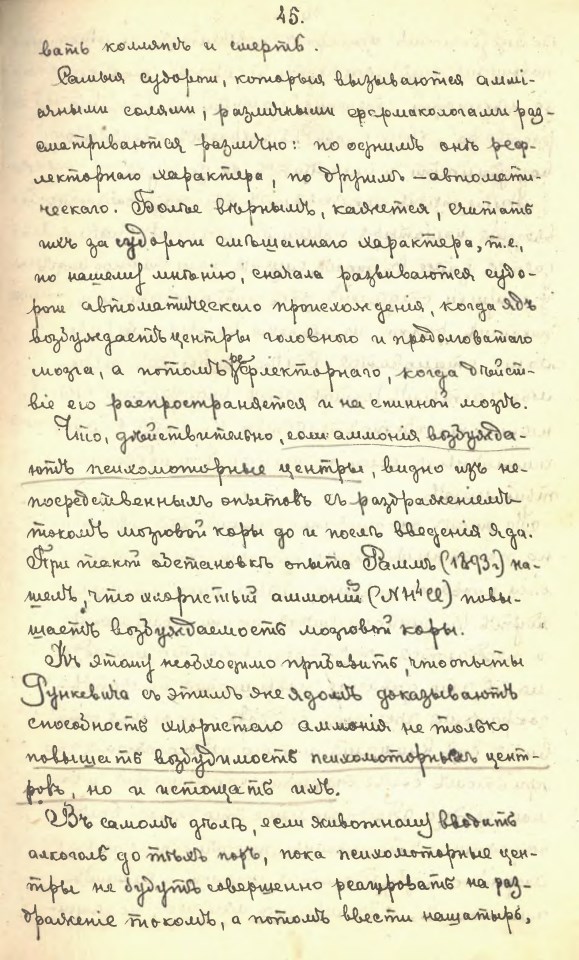 45.
вать коллапсъ и смерть.
Самыя судороги, которыя вызываются аммі-
ачными солями, различными фармакологами раз-
сматриваются различно: по однимъ онѣ реф-
лекторнаго характера, по другимъ – автомати-
ческаго. Болѣе вѣрнымъ, кажется, считать
ихъ за судороги смѣшаннаго характера, т.е.,
по нашему мнѣнію, сначала развиваются судо-
роги автоматическаго происхожденія, когда ядъ
возбуждаетъ центры головного и продолговатаго
мозга, а потомъ рефлекторнаго, когда дѣйст-
віе его распространяется и на спинной мозгъ.
Что, дѣйствительно, соли аммонія возбужда-
ютъ психомоторные центры, видно изъ не-
посредственныхъ опытовъ съ раздраженіемъ
токомъ мозговой коры до и послѣ введенія яда.
При такой обстановкѣ опыта Раммъ (1893 г.) на-
шелъ, что хлористый аммоній (NH⁴Cl) повы-
шаетъ возбуждаемость мозговой коры.
Къ этому необходимо прибавить, что опыты
Рункевича съ этимъ же ядомъ доказываютъ
способность хлористаго аммонія не только
повышать возбудимость психомоторныхъ цент-
ровъ, но и истощать ихъ.
Въ самомъ дѣлѣ, если животному вводить
алкоголь до тѣхъ поръ, пока психомоторные цен-
тры не будутъ совершенно реагировать на раз-
драженіе токомъ, а потомъ ввести нашатырь,